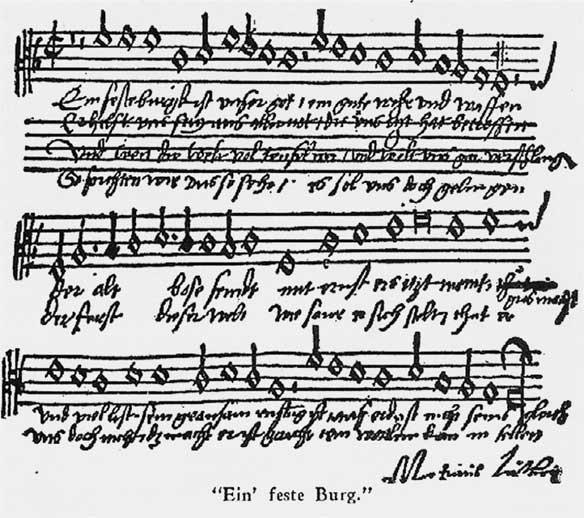 Ein feste burgk ist unser got / ein gute wehr und waffen
Er hilfft uns frey aus aller not / die uns itzt hat betroffen
Und wen die welt vol teufel wer / und wolt uns gar verschlingen
So furchten wir uns so sehr / es sol uns doch gelingen
der alt bose feindt mit ernst ers itzt meint
gros macht
der furst dieser welt wie saur er sich stelt / thut er
und viel list sein grausam rustung ist / auf erd ist nicht seins gleich
uns doch nicht / das macht er ist gericht / ein wortlin kan in fellen
Martinus Luther
"Ein' feste Burg."